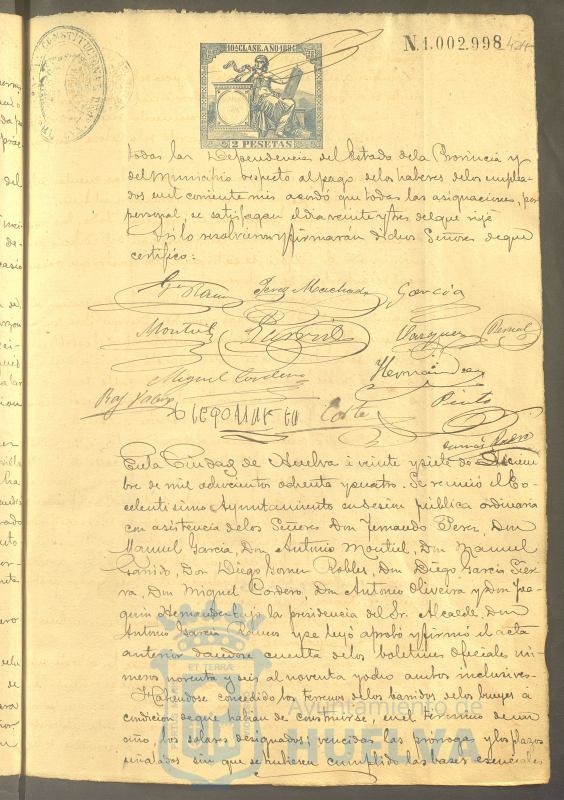 10ª CLASE. AÑO 188
N.1.002.998
2 PESETAS
todas las Dependencias del Estado de la Provincia y
del Municipio respecto al pago de los haberes de los emplea-
dos en el corriente mes acordó que todas las asignaciones, por
personal, se satisfagan el dia veinte y tres del que rije
Asi lo resolvieron y firmarán dichos Señores de que
certifico:
Perez Machado García
Montiel Garrido Vazquez Bernal
Miguel Cordero Hernandez
Corte Pinto
En la Ciudad de Huelva á veinte y siete de Diciem-
bre de mil ochocientos ochenta y cuatro. Se reunió el Ex-
celentisimo Ayuntamiento en sesión pública ordinaria
con asistencia de los Señores Don Fernando Perez, Don
Manuel García, Don Antonio Montiel, Don Manuel
Garrido, Don Diego Gomez Robles, Don Diego García
Don Miguel Cordero, Don Antonio Oliveira y Don Joa-
quin Hernandez bajo la presidencia del Sr. Alcalde Don
Antonio García Ramos y se leyó aprobó y firmó el acta
anterior dandose cuenta de los boletines oficiales nú-
meros noventa y seis al noventa y ocho ambos inclusives-
Habiendose concedido los terrenos de los barridos de los
condición de que habian de construirse, en el termino de un
año los solares designados, vencidas las prorrogas y los plazos
señalados sin que se hubieren cumplido las bases esenciales
ET TERRÆ
Ayuntamiento de
HUELVA